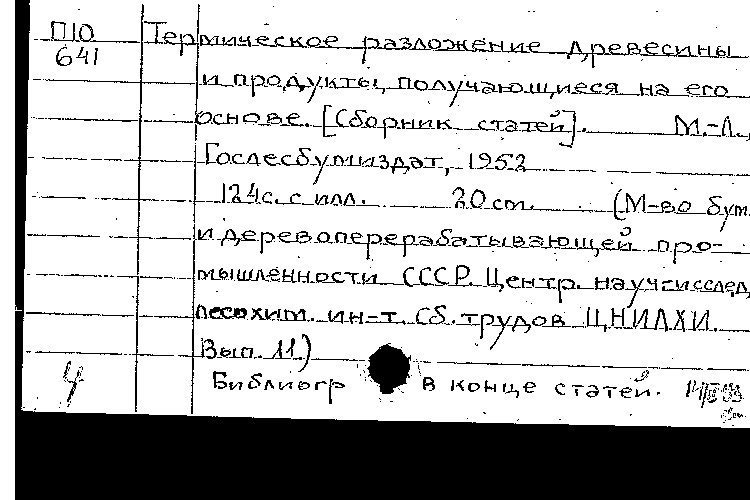 П10 Термическое разложение древесины
641
и продукты, получающиеся на его
основе. [Сборник статей]. М.-Л.,
Гослесбумиздат, 1952
124с. с илл. 20 см. (М-во бум.
и деревоперерабатывающей про-
мышленности СССР. Центр. науч-исслед.
лесохим. ин-т. Сб. трудов ЦНИЛХИ.
Вып. 11.)
Библиогр в конце статей.